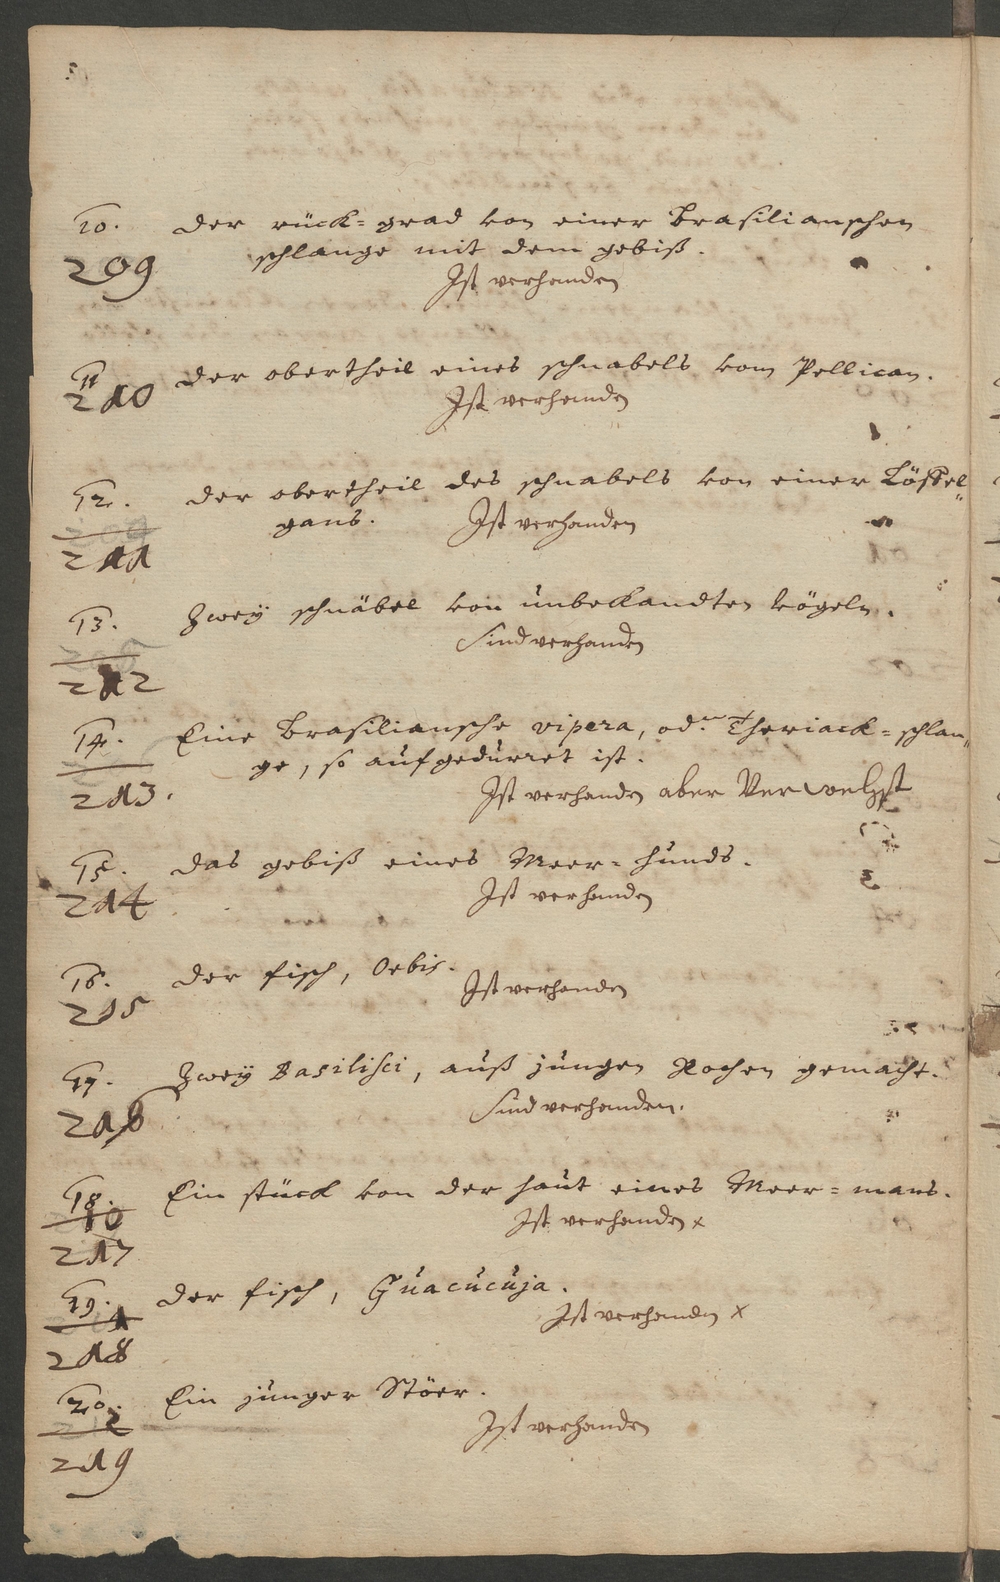 10. Der rück=grad von einer Brasilianschen
209 schlange mit dem gebiß.
Ist verhanden
11 Der obertheil eines schnabels vom Pellican.
210 Ist verhanden
12. Der obertheil des schnabels von einer Löffel„
gans. Ist verhanden
211
13. Zweÿ schnäbel von unbekandten vögeln.
Sind verhanden
212
14. Eine Brasiliansche vipera, od. Theriack=schlan„
ge, so aufgedürret ist.
213. Ist verhanden aber Verwelgst
15. Das gebiß eines Meer=hunds.
214 Ist verhanden
16. Der fisch, Orbis.
215 Ist verhanden
17. Zweÿ Basilisci, auß jungen Rochen gemacht.
216 Sind verhanden.
18. Ein stück von der haut eines Meer=mans.
10 Ist verhanden x
217
19. Der fisch, Guacucuja.
Ist verhanden x
218
20. Ein junger Stöer.
Ist verhanden
219